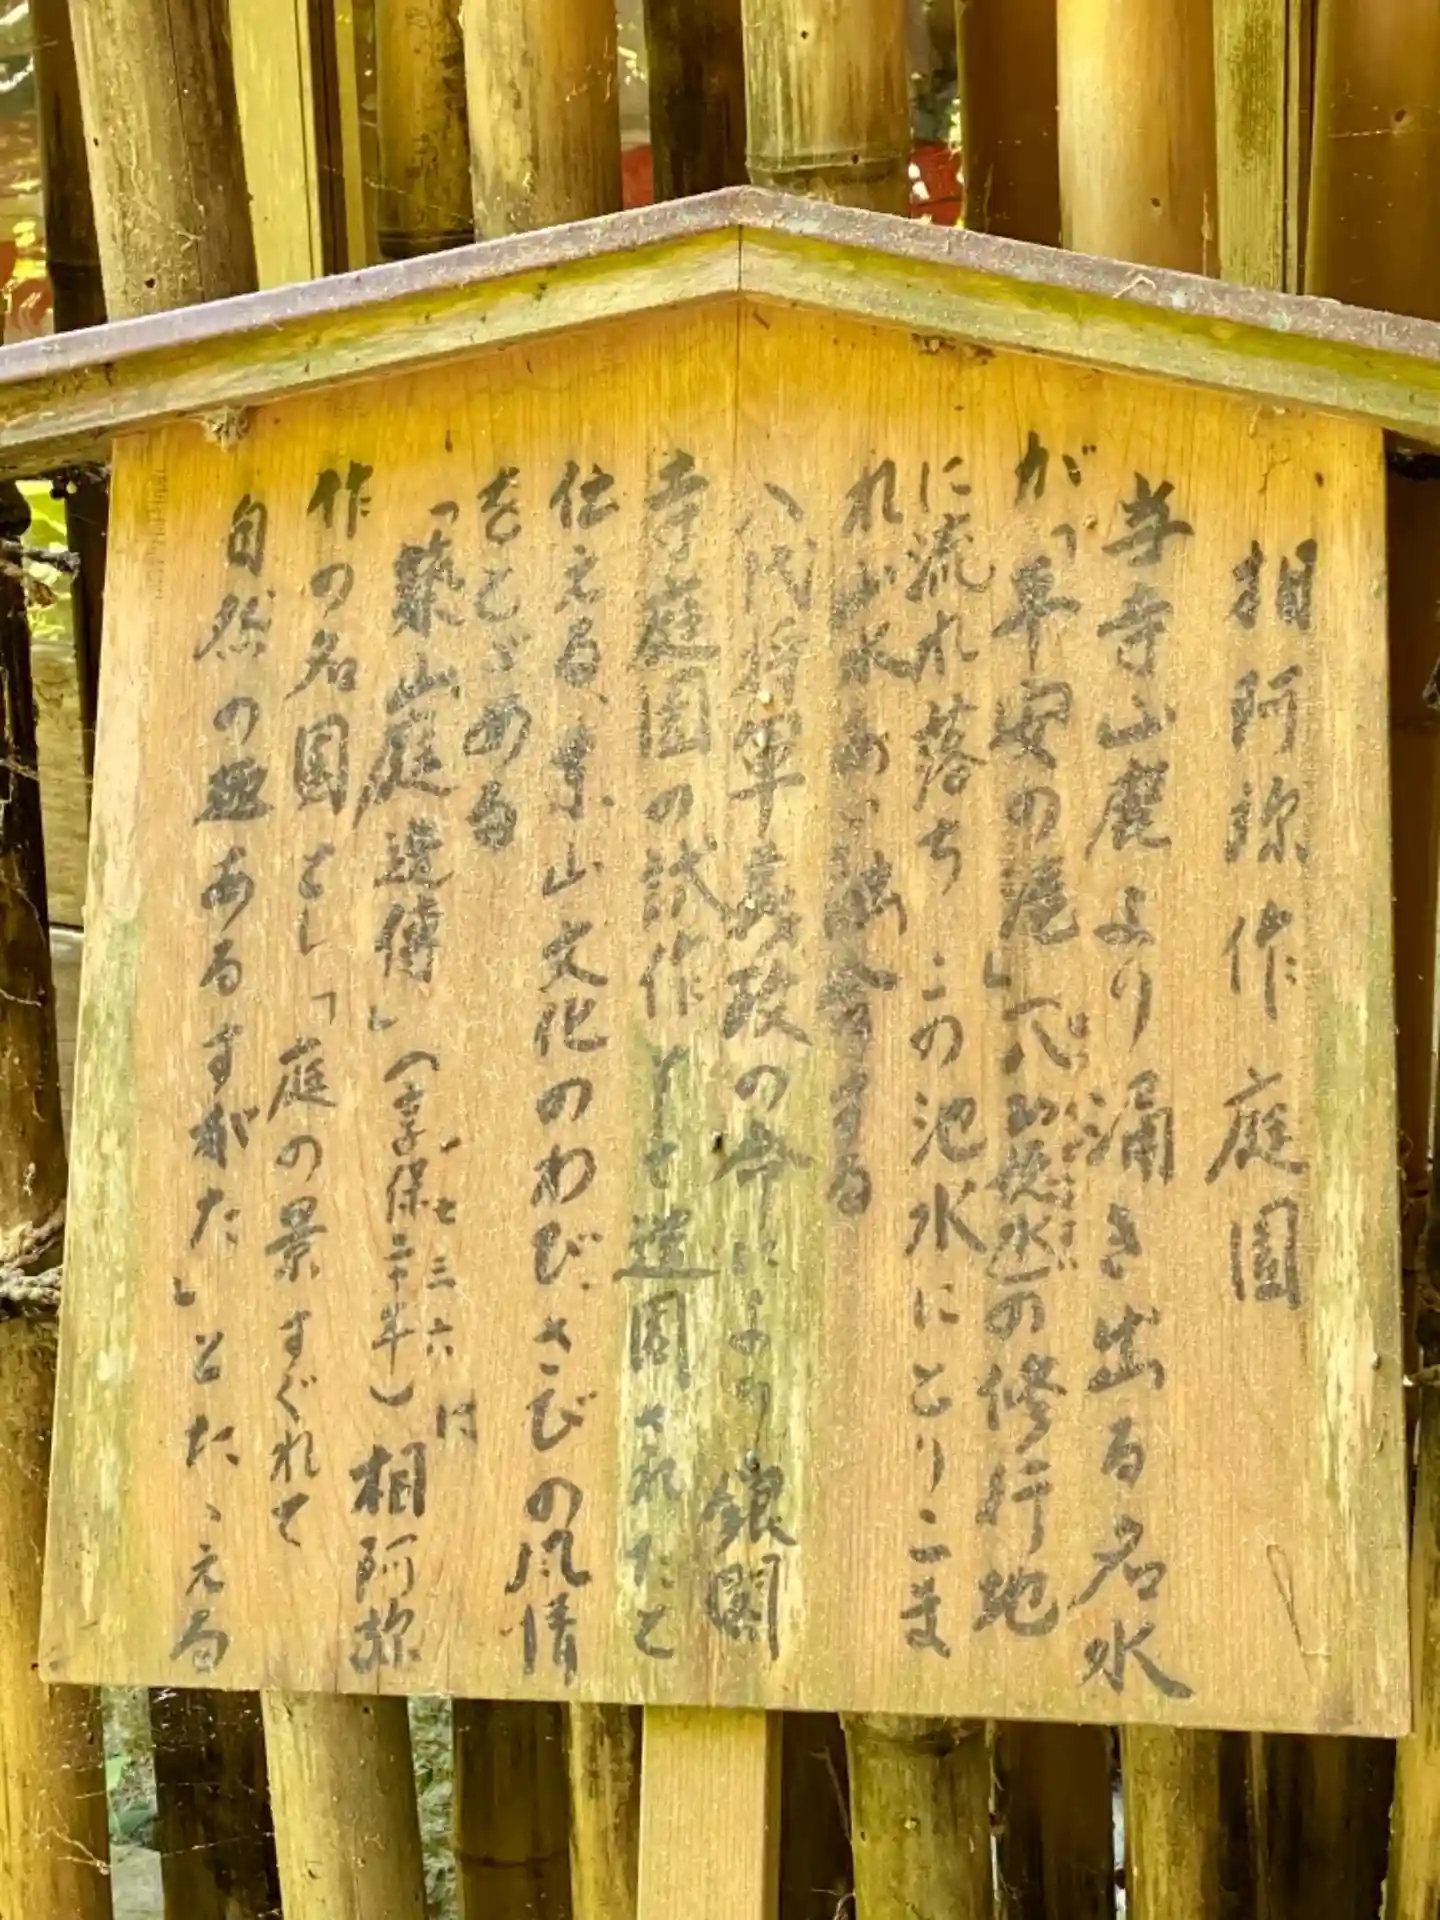 相阿弥作庭園
当寺山麓より涌き出る名水
が「平安の滝」(八功徳水)の修行地
に流れ落ちこの池水にとりこま
れ山水あい融合する
八代将軍義政の命により銀閣
寺庭園の試作として造園されたと
伝える、東山文化のわび、さびの風情
をとどめる
「築山庭造傳」(享保二十年)一七三六は相阿弥
作の名園とし「庭の景すぐれて
自然の趣あるすがた」とたゝえる